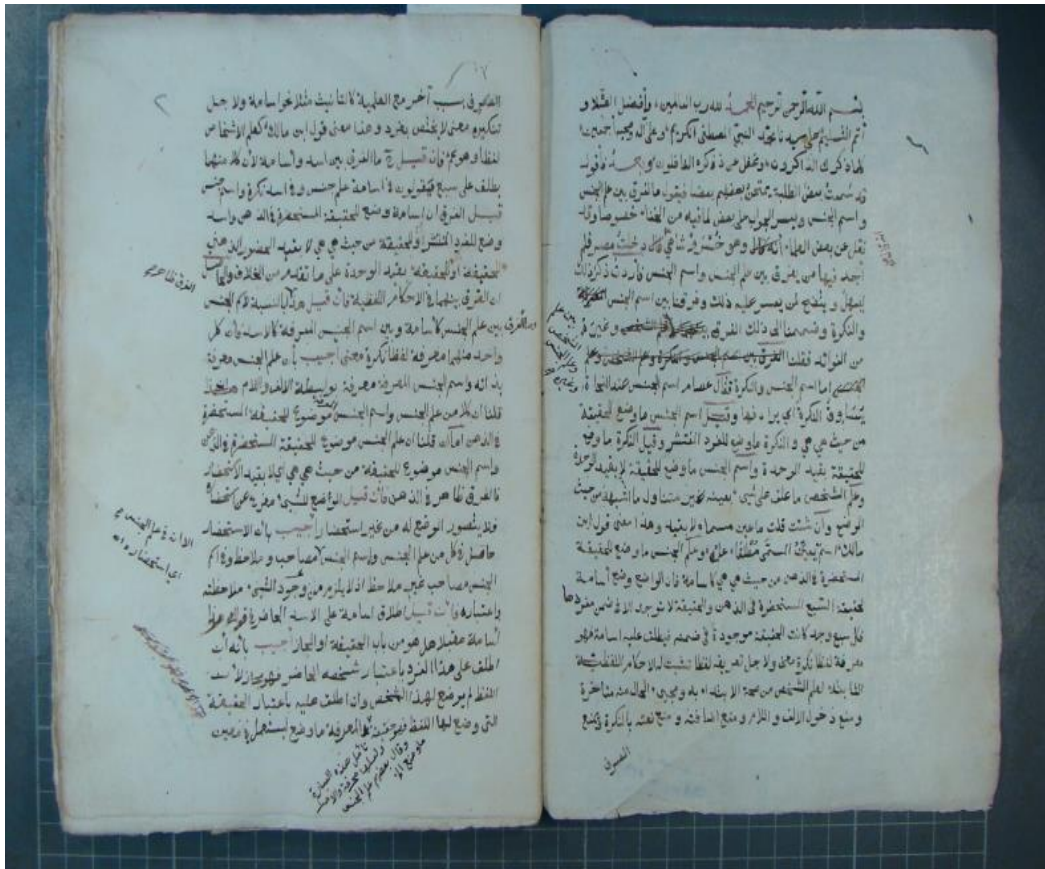 بسم الله الرحمن الرحيم الحمد لله رب العالمين وأفضل الصلاة و
أتم التسليم على سيدنا محمد النبي المصطفى الكريم وعلى آله وصحبه أجمعين
كلما ذكرك الذاكرون وغفل عن ذكره الغافلون وبعد فأقول
قد سمعت بعض الطلبة يمتحن بعضهم بعضا فيقول ما الفرق بين علم الجنس
واسم الجنس ويعسر الجواب على بعض لما فيه من الخفاء خصوصا وقد
نقل عن بعض العلماء أنه وهو خسرو شاهي قال دخلت مصر فلم
أجد فيها من يفرق بين علم الجنس واسم الجنس فأردت ذكر ذلك
ليسهل ويتضح لمن يعسر عليه ذلك وفرقا بين اسم الجنس
والنكرة وضممنا إلى ذلك الفرق وغير ذلك
من الفوائد فقلنا
أما اسم الجنس والنكرة فقال عصام اسم الجنس عند النحاة
النكرة أي يرادفها وقيل اسم الجنس ما وضع للحقيقة
من حيث هي هي والنكرة ما وضع للفرد المنتشر وقيل النكرة ما وضع
للحقيقة بقيد الوحدة واسم الجنس ما وضع للحقيقة لا بقيد الوحدة
وعلم الشخص ما علق على شيء بعينه غير متناول ما أشبهه من حيث
الوضع وإن شئت قلت ما عين مسماه لا بقيد وهذا معنى قول ابن
مالك اسم يعين المسمى مطلقا علمه وعلم الجنس ما وضع للحقيقة
المستحضرة في الذهن من حيث هي هي كأسامة فإن الواضع وضع أسامة
لحقيقة السبع المستحضرة في الذهن والحقيقة لا توجد إلا في ضمن مفردها
فكل سبع وجد كانت الحقيقة موجودة في ضمنه فيطلق عليه أسامة فهو
معرفة لفظا نكرة معنى ولأجل تعريفه لفظا تثبت له الأحكام اللفظية
الثابتة لعلم الشخص من صحة الابتداء به ومجيء الحال منه متأخرة
ومنع دخول الألف واللام ومنع إضافته ومنع نعته بالنكرة ومنع
الصرف
بين علم
الشخص
وعلم الجنس
الصرف في سبب آخر مع العلمية كالتأنيث مثلا نحو أسامة ولأجل
تنكيره معنى لا يختص بفرد وهذا معنى قول ابن مالك كعلم الأشخاص
لفظا وهو عم فإن قيل ح ما الفرق بين أسد وأسامة لأن كلا منهما
يطلق على سبع فيقولون في أسامة علم جنس وفي أسد نكرة واسم جنس
قيل الفرق أن أسامة وضع للحقيقة المستحضرة في الذهن وأسد
وضع للفرد المنتشر أو للحقيقة من حيث هي هي لا بقيد الحضور الذهني
للحقيقة أو للحقيقة بقيد الوحدة على ما تقدم من الخلاف والحاصل
أن الفرق بينهما في الأحكام اللفظية فإن قيل هذا بالنسبة لاسم الجنس
وما الفرق بين علم الجنس كأسامة وبين اسم الجنس المعرفة كالأسد فإن كل
واحد منهما معرفة لفظا نكرة معنى أجيب بأن علم الجنس معرفة
بذاته واسم الجنس المعرفة معرفة بواسطة الألف واللام
قلنا أن كلا من علم الجنس واسم الجنس موضوع للحقيقة المستحضرة
في الذهن أما إن قلنا أن علم الجنس موضوع للحقيقة المستحضرة في الذهن
واسم الجنس موضوع للحقيقة من حيث هي هي أي لا بقيد الاستحضار
فالفرق ظاهر في الذهن فإن قيل الوضع للشيء معرفة عن استحضاره
فلا يتصور الوضع له من غير استحضار أجيب بأن الاستحضار
حاصل في كل من علم الجنس واسم الجنس لكنه مصاحب وملاحظ وفي اسم
الجنس مصاحب غير ملاحظ إذ لا يلزم من وجود الشيء ملاحظته
واعتباره فإن قيل إطلاق أسامة على الأسد الحاضر في قولك هذا
أسامة مقبلا هل هو من باب الحقيقة أو المجاز أجيب بأنه إن
أطلق على هذا الفرد باعتبار شخصه الحاضر فهو مجاز لأن
اللفظ لم يوضع لهذا الشخص وإن أطلق عليه باعتبار الحقيقة
التي وضع لها اللفظ فهو حقيقة المعرفة ما وضع ليستعمل في معين
الفرق ظاهر
إلا أنه في علم الجنس
أي استحضاره
تأمل هذه العبارة
وقال بعضهم علم الجنس